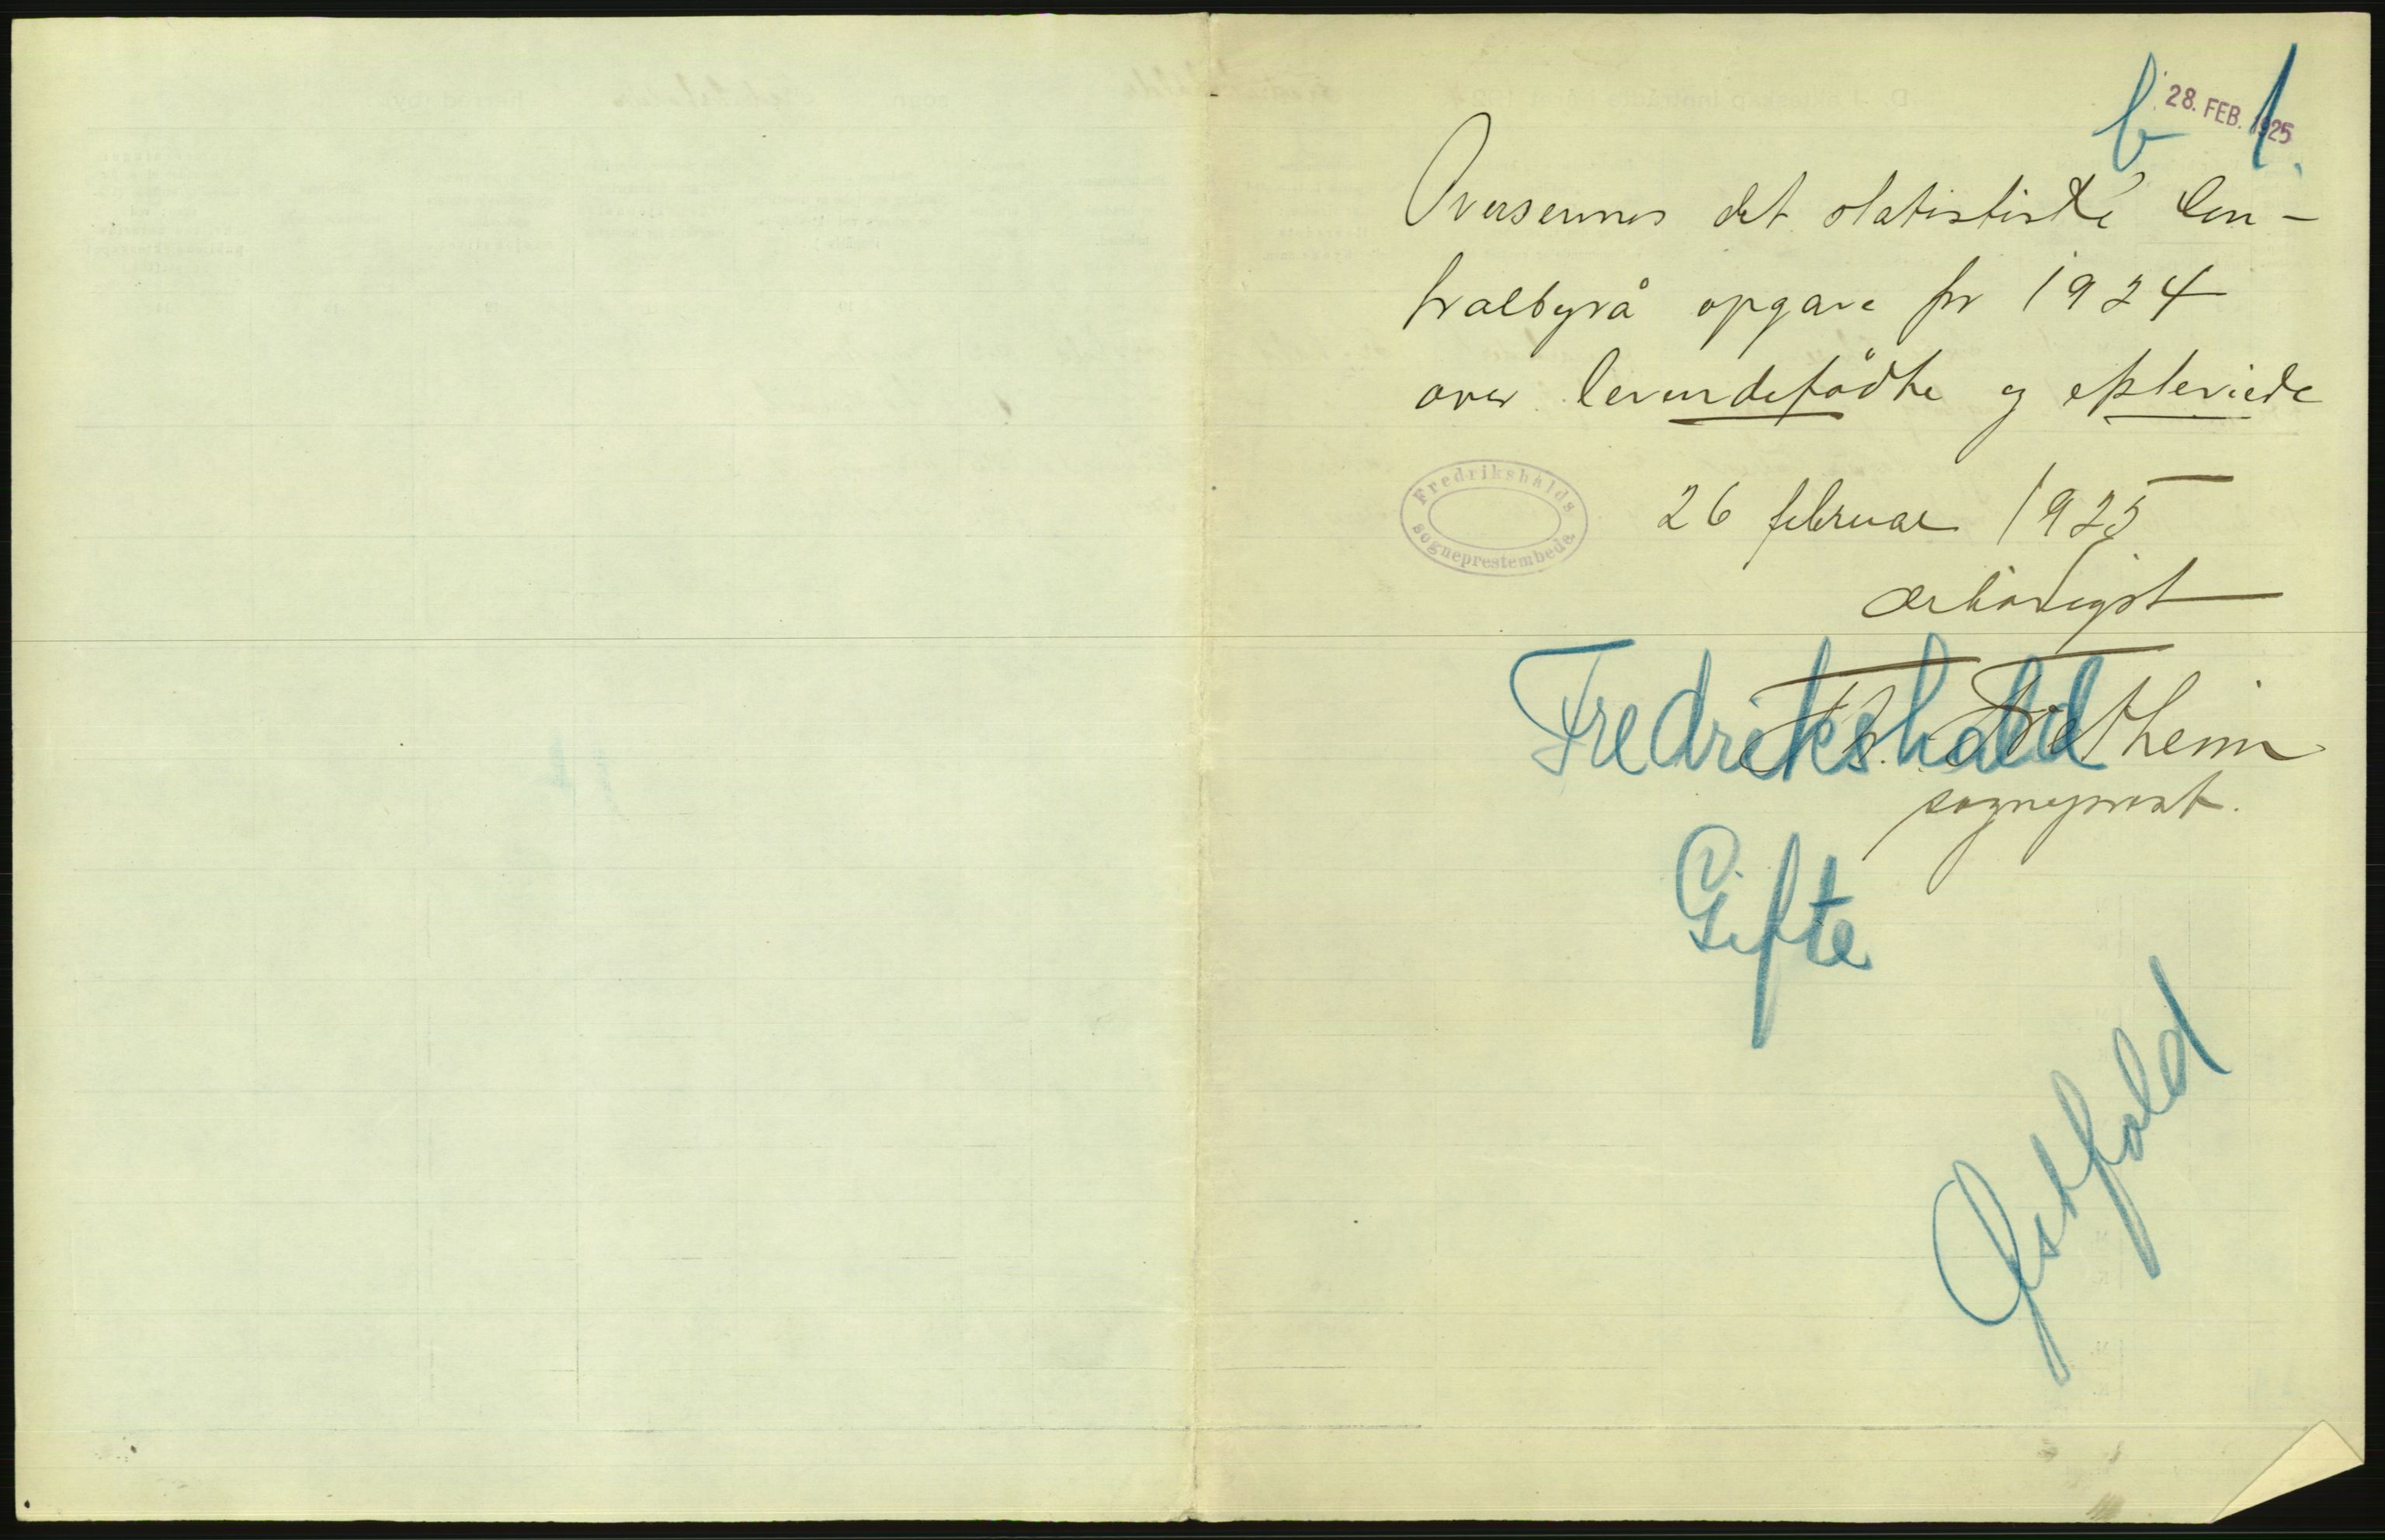 b 1.
28. FEB. 1925
Oversennes det statistiske Cen-
tralbyrå opgave for 1924
over levendefødte og ekteviede
Fredrikshalds
sogneprestembede
26 februar 1925
ærbødigst
Fredrikshald
sogneprest.
Gifte
Østfold